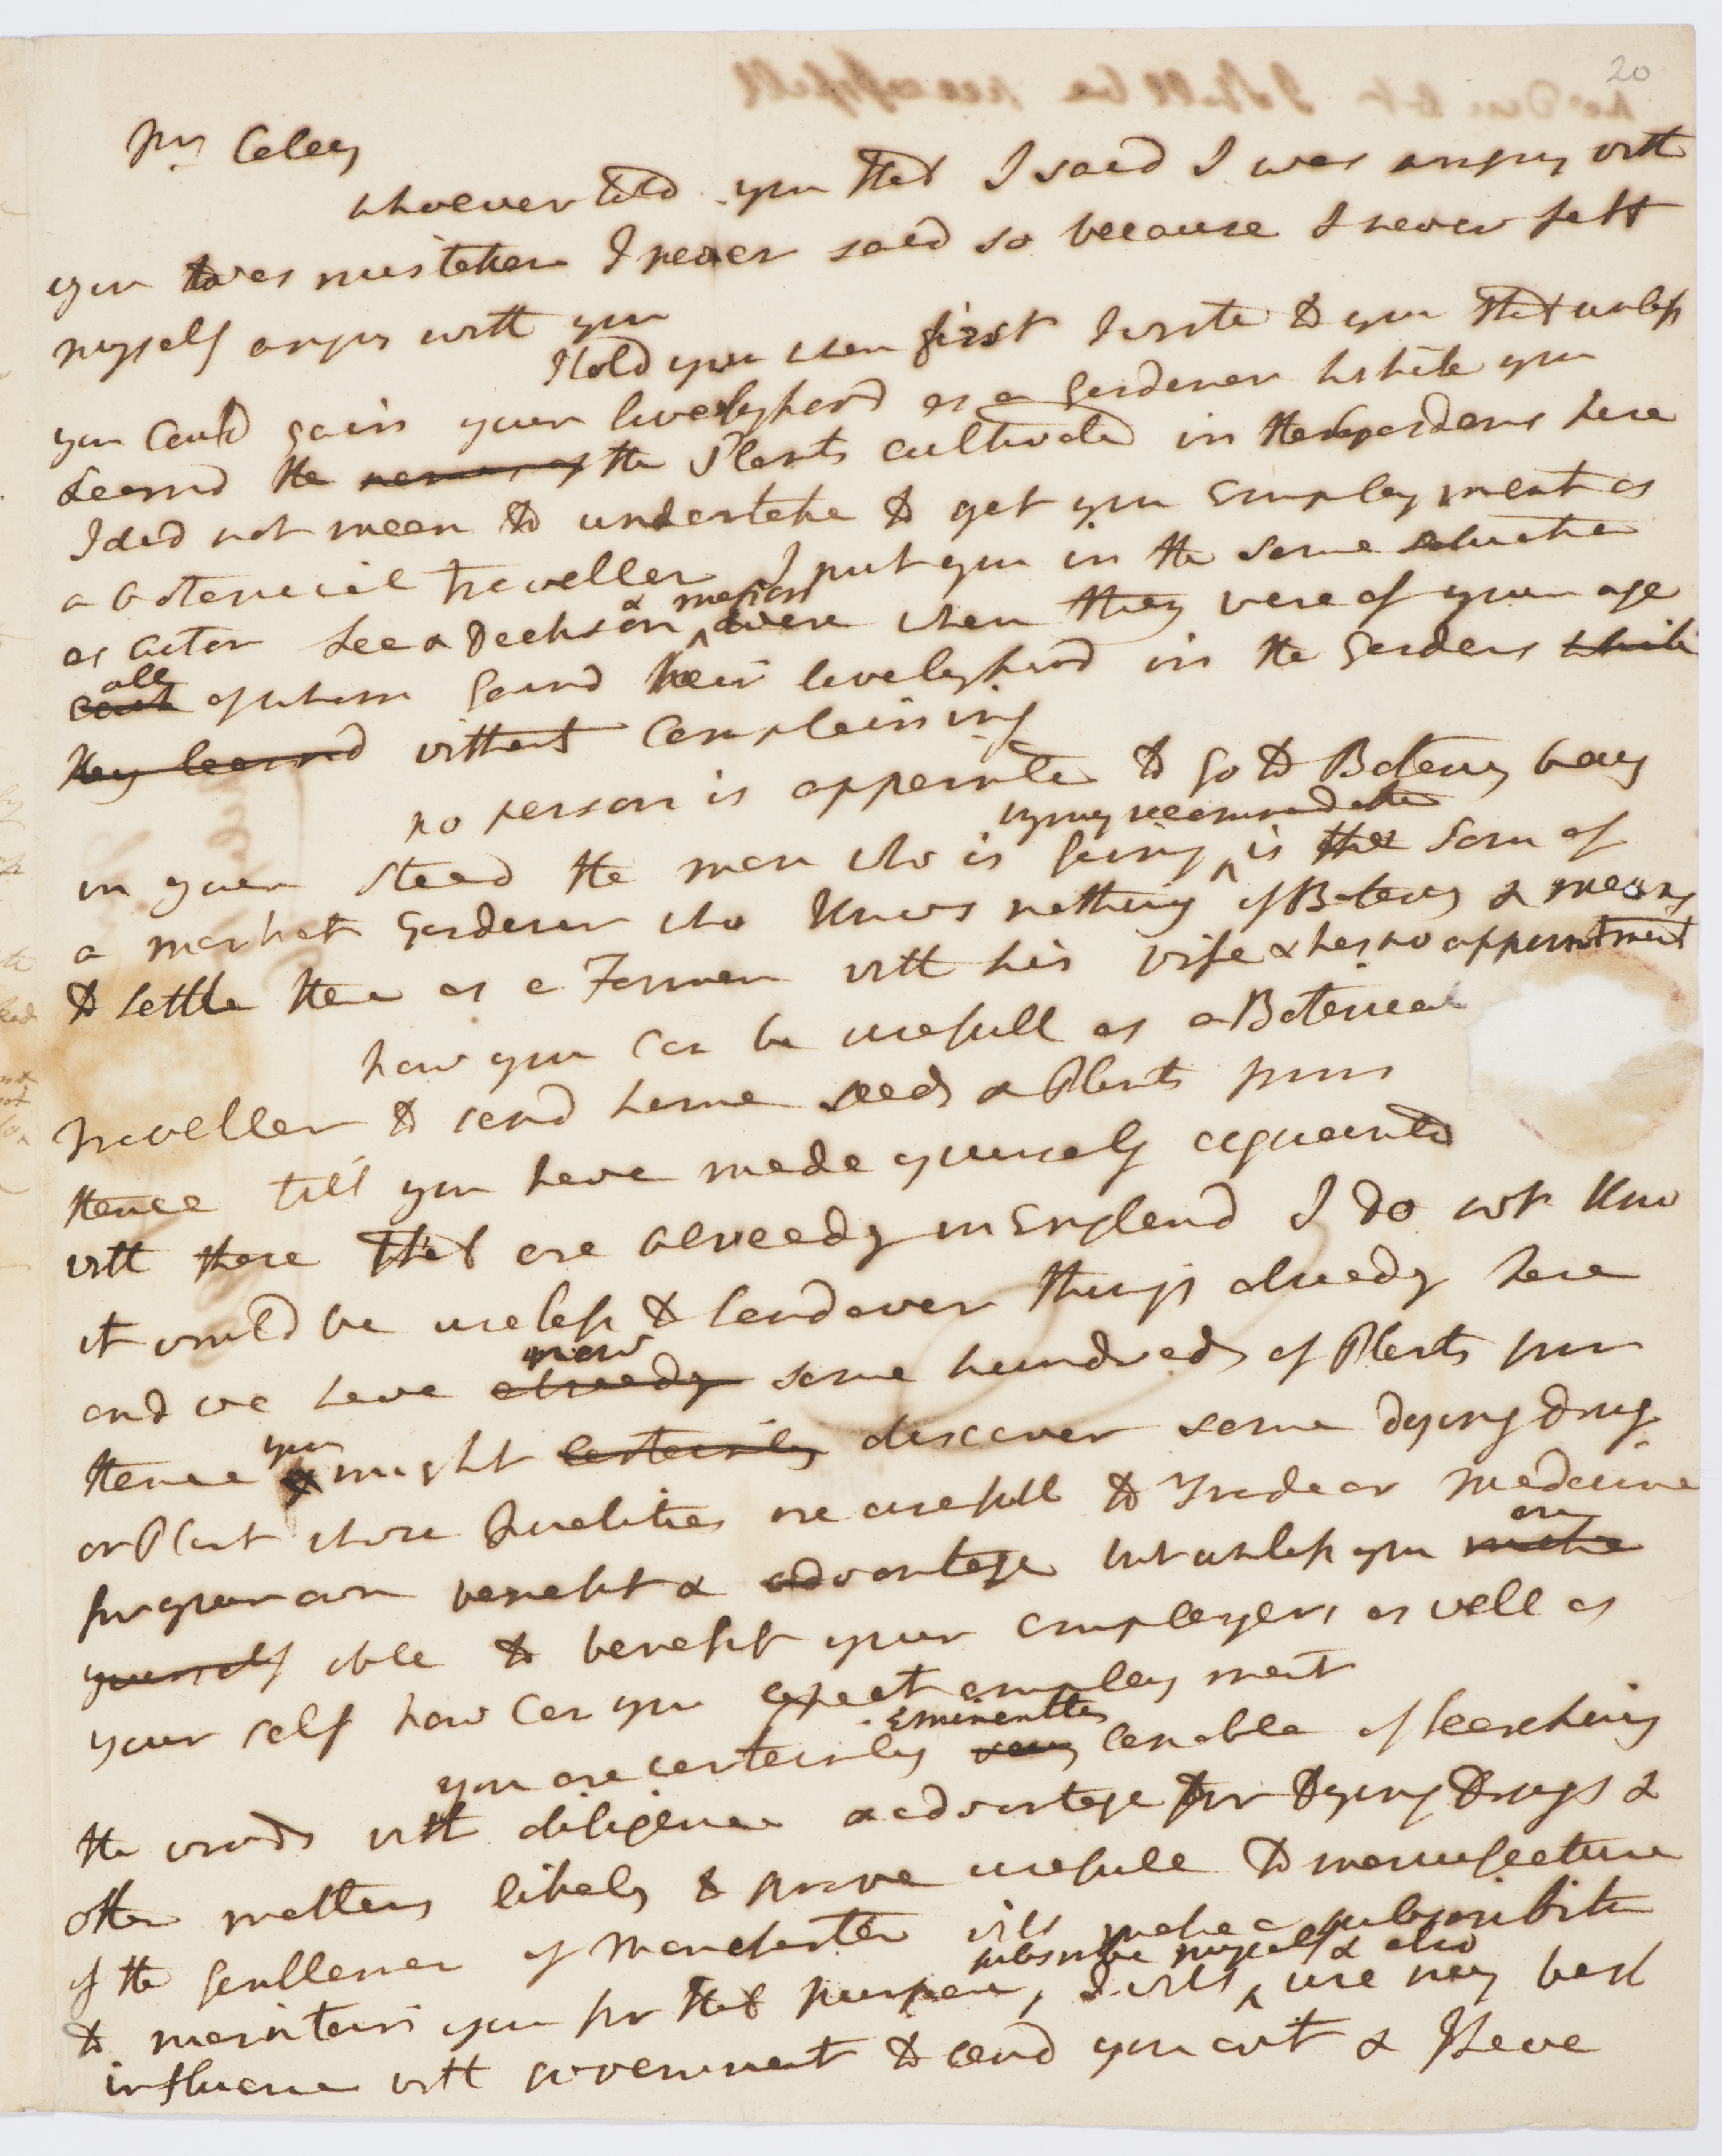 20
Mr Caley
whoever told you that I said I was angry with
you was mistaken I never said so because I never felt
myself angry with you
I told you when first I wrote to you that unless
you could gain your livelyhood as a Gardener while you
Learnd the names of the Plants cultivated in the gardens here
I did not mean to undertake to get you Employment as
a botanical Traveller I put you in the same situation
as Aiton Lee & Dickson & Masson were when they were of your age
each all of whom gaind their livelyhood in the Gardens while
they learnd without complaining
no person is appointed to go to Botany bay
in your stead the man who is going by my recommendation is the Son of
a market Gardener who knows nothing of Botany & means
to settle there as a Farmer with his wife & has no appointment
how you can be usefull as a Botanical
Traveller & send home seeds & Plants from
thence till you have made yourself aquainted
with those that are already in England I do not kno
it would be useless to send over things already here
and we have already now some hundreds of Plants from
thence you might certainly discover some dying drug
or Plant whose Qualities are usefull to Trade or Medicine
for your own benefit & advantage but unless you make are
yourself able to benefit your employers as well as
your self how can you expect employment
you are certainly very Eminently capable of searching
the woods with diligence & advantage for Dying Drugs &
other matters likely to prove usefull to manufacture
if the gentlemen of Manchester will make a subscribtion
to maintain you for that purpose, I will subscribe myself & also use my best
influence with government to send you out & I have